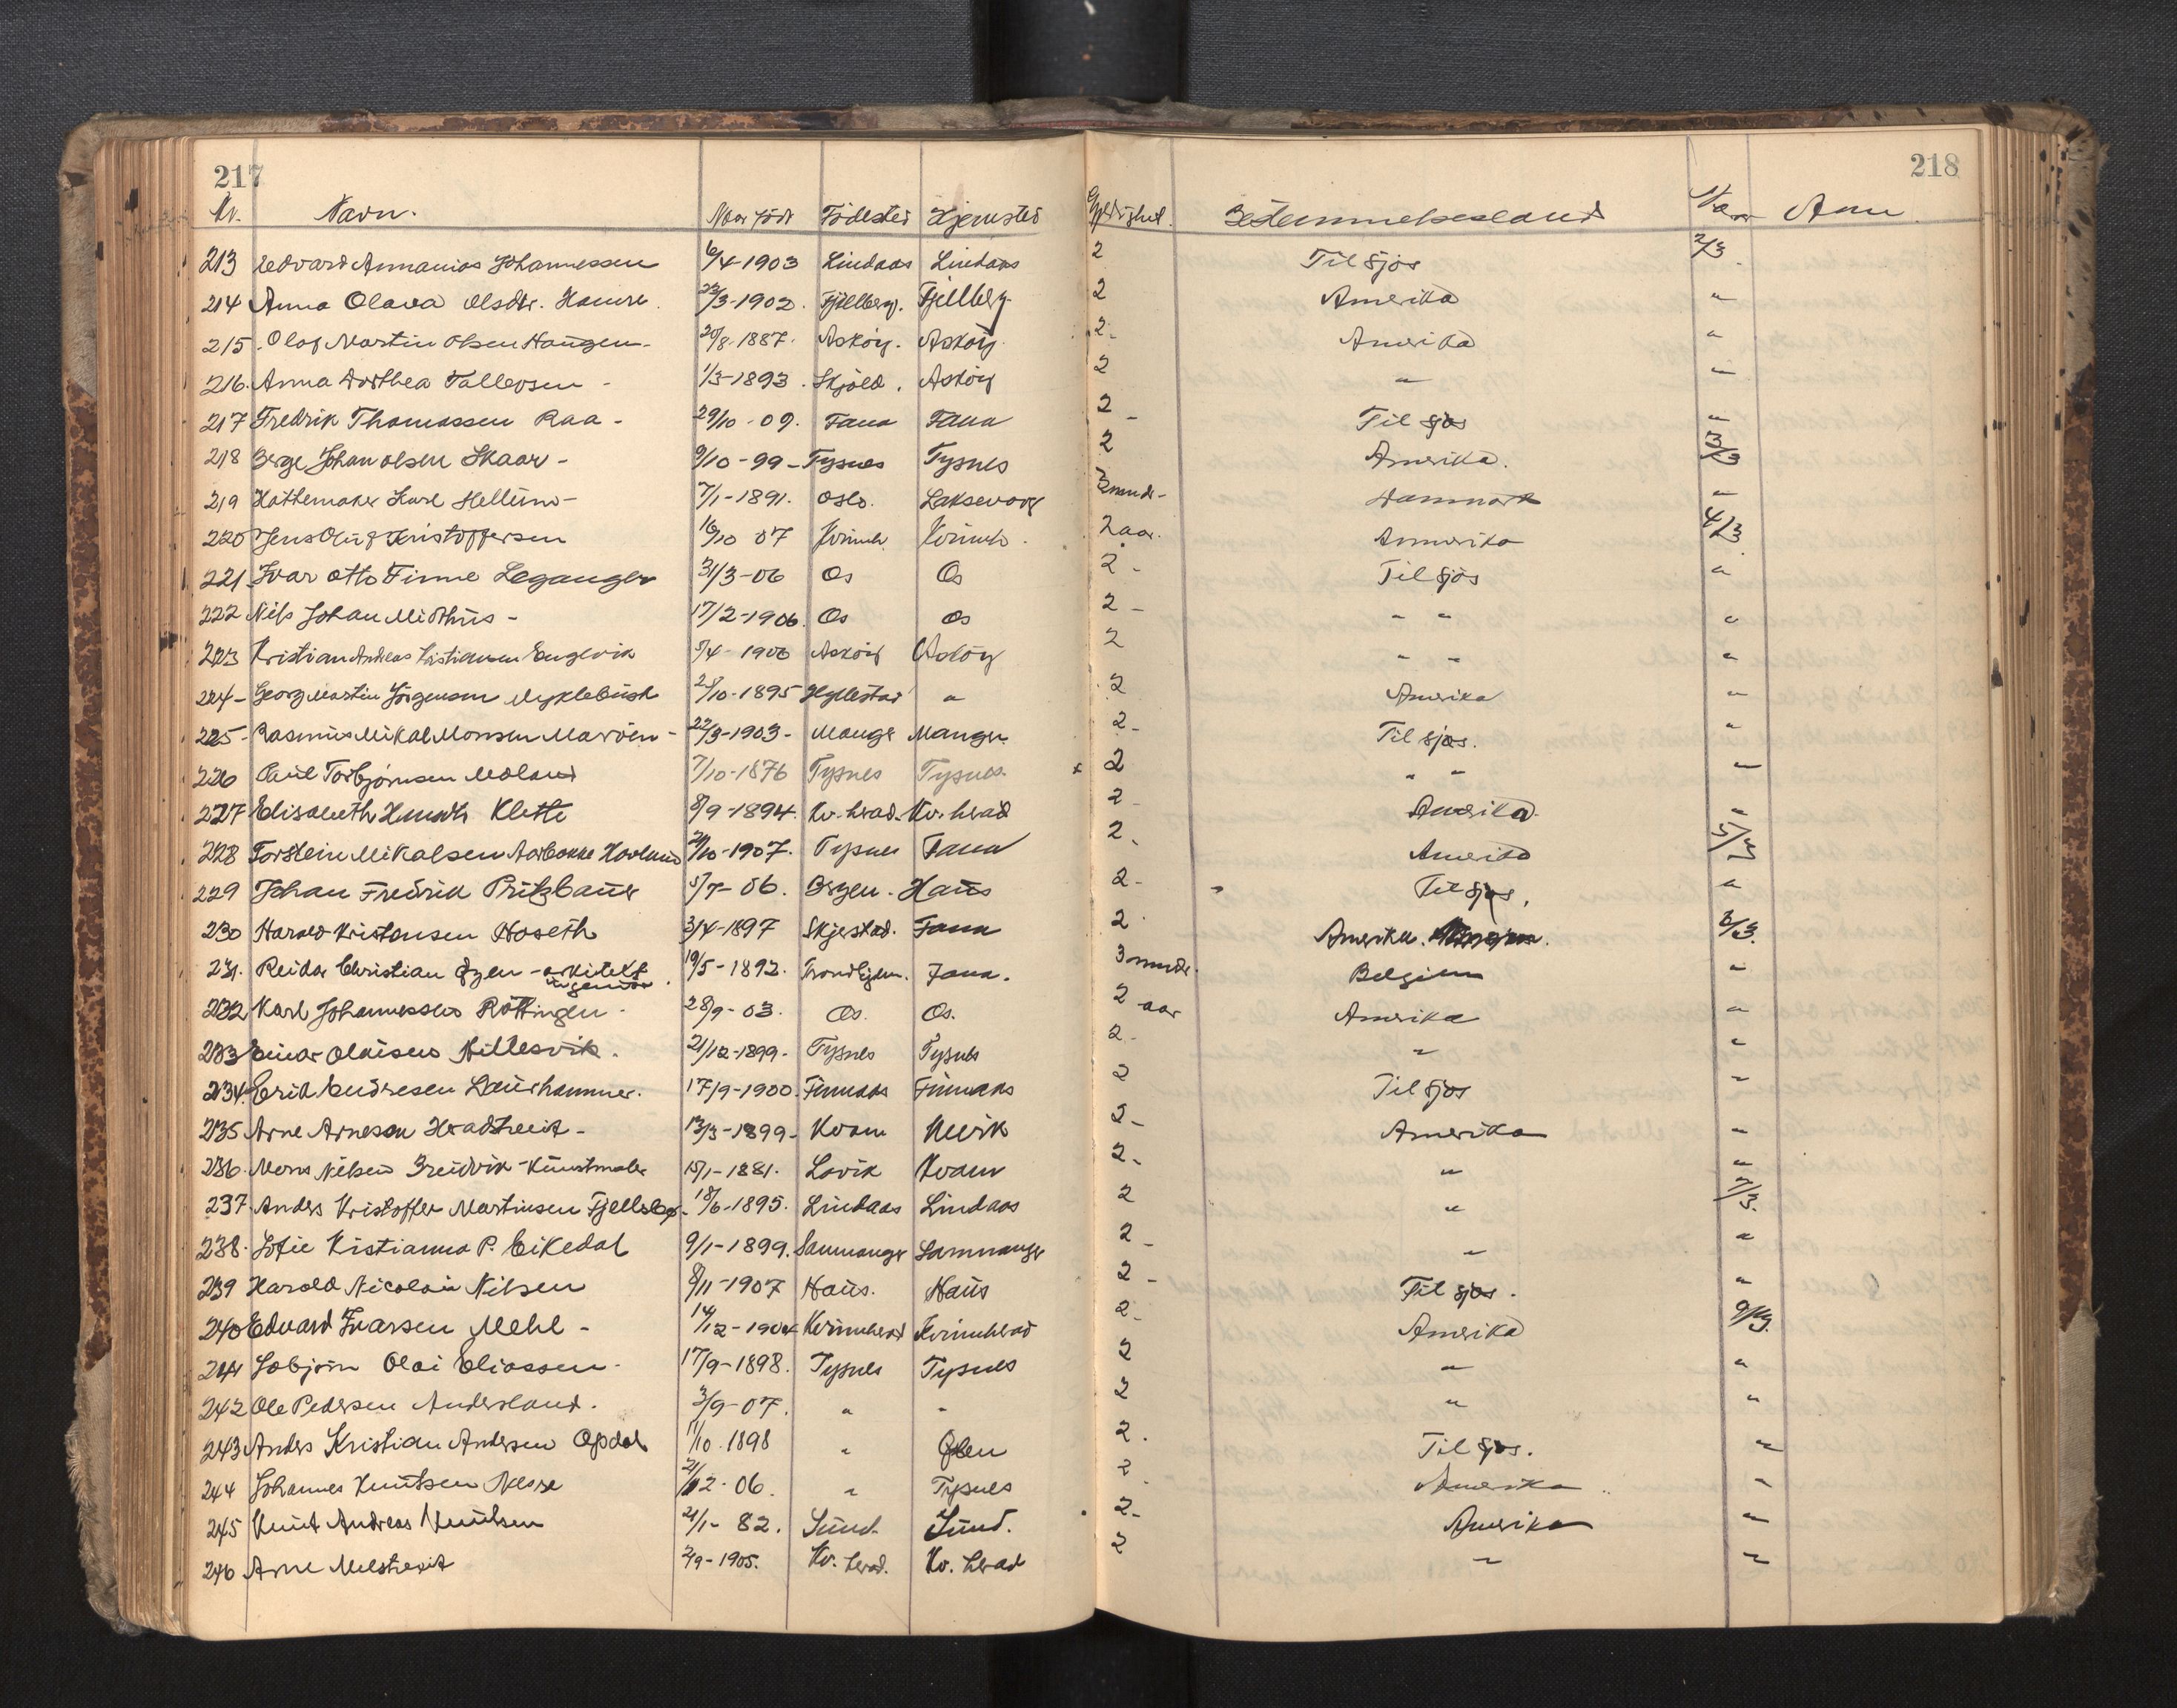 217 218
Nr. Navn. Naar födt Födested Hjemsted Gyldighet. Bestemmelsesland Naar Anm.
213 Edvard Annanias Johannessen 6/4-1903 Lindaas Lindaas 2 Til sjøs 2/3
214 Anna Olava Olsdtr. Hamre 22/3-1902. Fjellberg. Fjellberg 2 Amerika "
215. Olaf Martin Olsen Haugen - 20/8-1887. Asköy. Asköy 2 - Amerika "
216. Anna Dorthea Tallersen - 1/3-1893. Skjold. Asköy 2 " "
217 Fredrik Thomassen Raa - 29/10-09. Fana Fana 2 - Til sjøs "
218 Berge Johan Olsen Skaar - 9/10-99 - Tysnes Tysnes 2 Amerika. 3/3
219 Hattemaker Karl Hellum - 7/1-1891. Oslo. Laksevaag 3 mndr - Danmark "
220 Jens Oluf Kristoffersen 16/10 07 Kvinnh. Kvinnh. 2 aar. Amerika 4/3
221 Ivar Otto Finne Leganger 31/3-06 Os Os 2 - Til sjøs "
222 Nils Johan Midthus - 17/2-1906. Os Os 2 - " " "
223 Kristian Andreas Kristiansen Engevik 5/4-1906 Asköy Asköy 2 " " "
224 - Georg Martin Jörgensen Myklebust 28/10-1895 Hyllestad " 2 Amerika "
225 - Rasmus Mikal Monsen Marøen - 22/3-1903 - Manger Manger 2 - Til sjøs. "
226 Paul Torbjørnsen Moland 7/10-1876 Tysnes Tysnes. 2 " " "
227 Elisabeth Klette 8/9-1894. Kv. herad. Kv. herad 2 - Amerika. "
228 Torstein Mikalsen Aarbakke Hovland 29/10-1907. Tysnes Fana 2 - Amerika 5/3
229 Johan Fredrik Pritzbauer 5/7-06. Bergen. Haus 2 - Til sjøs. "
230 Harald Kristensen Hoseth 3/4-1897 Skjerstad. Fana 2 Amerika. 6/3.
231. Reidar Christian - arkitekt ingeniør. 19/5-1892. Trondhjem. Fana. 3 mndr. Belgien "
232 Karl Johannessen Röttingen - 28/9-03. Os. Os. 2 aar Amerika "
233 Einar Olaisen Hillesvik. 21/12-1899 - Tysnes Tysnes 2 - " "
234. Erik Endresen Laurhammer. 17/9-1900. Finnaas Finnaas 2 Til sjøs "
235 Arne Arnesen Hradtveit - 13/3-1899 - Kvam 2 - Amerika "
236. Mons Nilsen Breidvik - Kunstmaler 15/1-1881. Lavik Kvam 2 - " "
237. Anders Kristoffer Martinsen 18/6-1895. Lindaas Lindaas 2 " 7/3.
238. Sofie Kristianna P. Eikedal 9/1-1899. Samnanger Samnanger 2 - " "
239 Harald Nicolai Nilsen 8/11-1907 Haus. Haus 2 - Til sjøs. "
240 Edvard Ivarsen Mehl - 14/12-1904 Kvinnherad Kvinnherad 2 - Amerika 9/3.
241 Olai Eliassen - 17/9-1898. Tysnes Tysnes 2 " "
242 Ole Pedersen Andersland. 3/9-07. " " 2 " "
243 Anders Kristian Andersen Opdal 11/10.1898 " Ølen 2. Til sjøs. "
244 Johannes Knutsen Nesse 21/12-06. " Tysnes 2 Amerika "
245 Knut Andreas Knutsen 21/1-82. Sund. Sund. 2 - Amerika "
246 Arne Melstveit 2/9-1905. Kv. herad. Kv. herad 2 " "